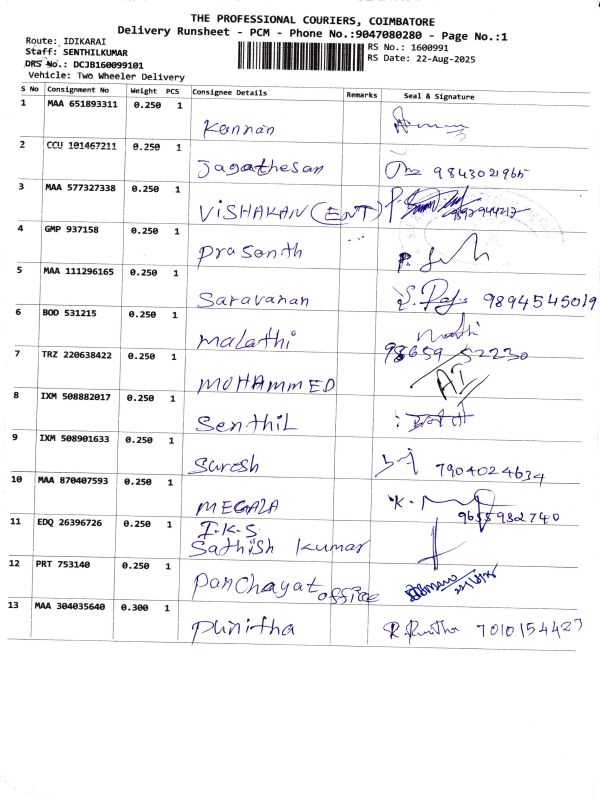 THE PROFESSIONAL COURIERS, COIMBATORE
Delivery Runsheet - PCM - Phone No.:9047080280 - Page No.:1
Route: IDIKARAI
RS No.: 1600991
Staff: SENTHILKUMAR
RS Date: 22-Aug-2025
DRS No.: DCJB160099101
Vehicle: Two Wheeler Delivery
S No Consignment No Weight PCS Consignee Details Remarks Seal & Signature
1 MAA 651893311 0.250 1 Kannan
2 CCU 101467211 0.250 1 Jagathesan 9843021965
3 MAA 577327338 0.250 1 VISHAKAN (ENT)
4 GMP 937158 0.250 1 Prasonth
5 MAA 111296165 0.250 1 Saravanan S. Raj. 9894545019
6 BOD 531215 0.250 1 Malathi
98659 52230
7 TRZ 220638422 0.250 1 MOHAMMED
8 IXM 508882017 0.250 1 Senthil
9 IXM 508901633 0.250 1 Suresh 7904024634
10 MAA 870407593 0.250 1 MEGALA
9655982740
11 EDQ 26396726 0.250 1 I.K.S
Sathish Kumar
12 PRT 753140 0.250 1 Panchayat office
13 MAA 304035640 0.300 1 Punitha R. Punitha 7010154427